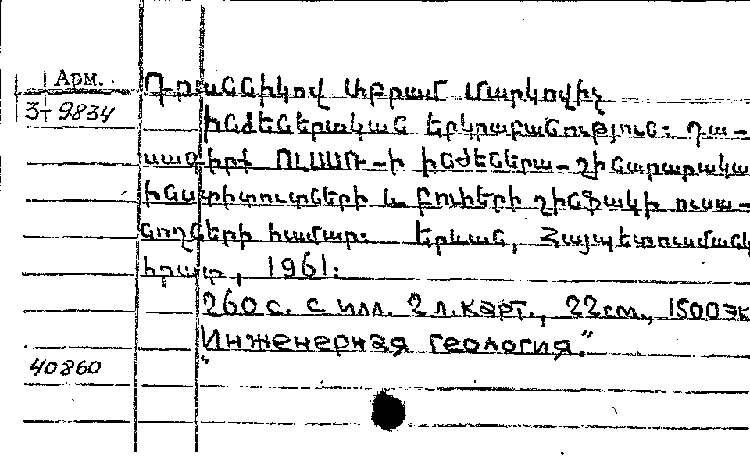 Арм.
3 1/т 9834
Դրաննիկով Աբրամ Մարկովիչ
Ինժեներական երկրաբանություն: Դա-
սագիրք ՈՒՍՍՌ-ի ինժեներա-շինարարական
ինստիտուտների և բուհերի շինֆակի ուսա-
նողների համար: Երևան, Հայպետուսմանկ
հրատ, 1961:
260 с. с илл. 2 л. карт., 22см., 1500 эк
"Инженерная геология."
40860